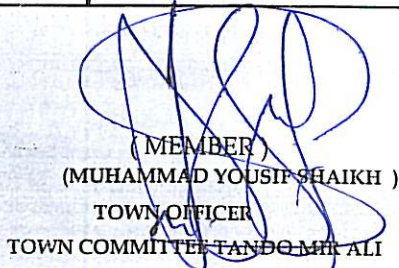 ( MEMBER )
(MUHAMMAD YOUSIF SHAIKH )
TOWN OFFICER
TOWN COMMITTEE TANDO MIR ALI